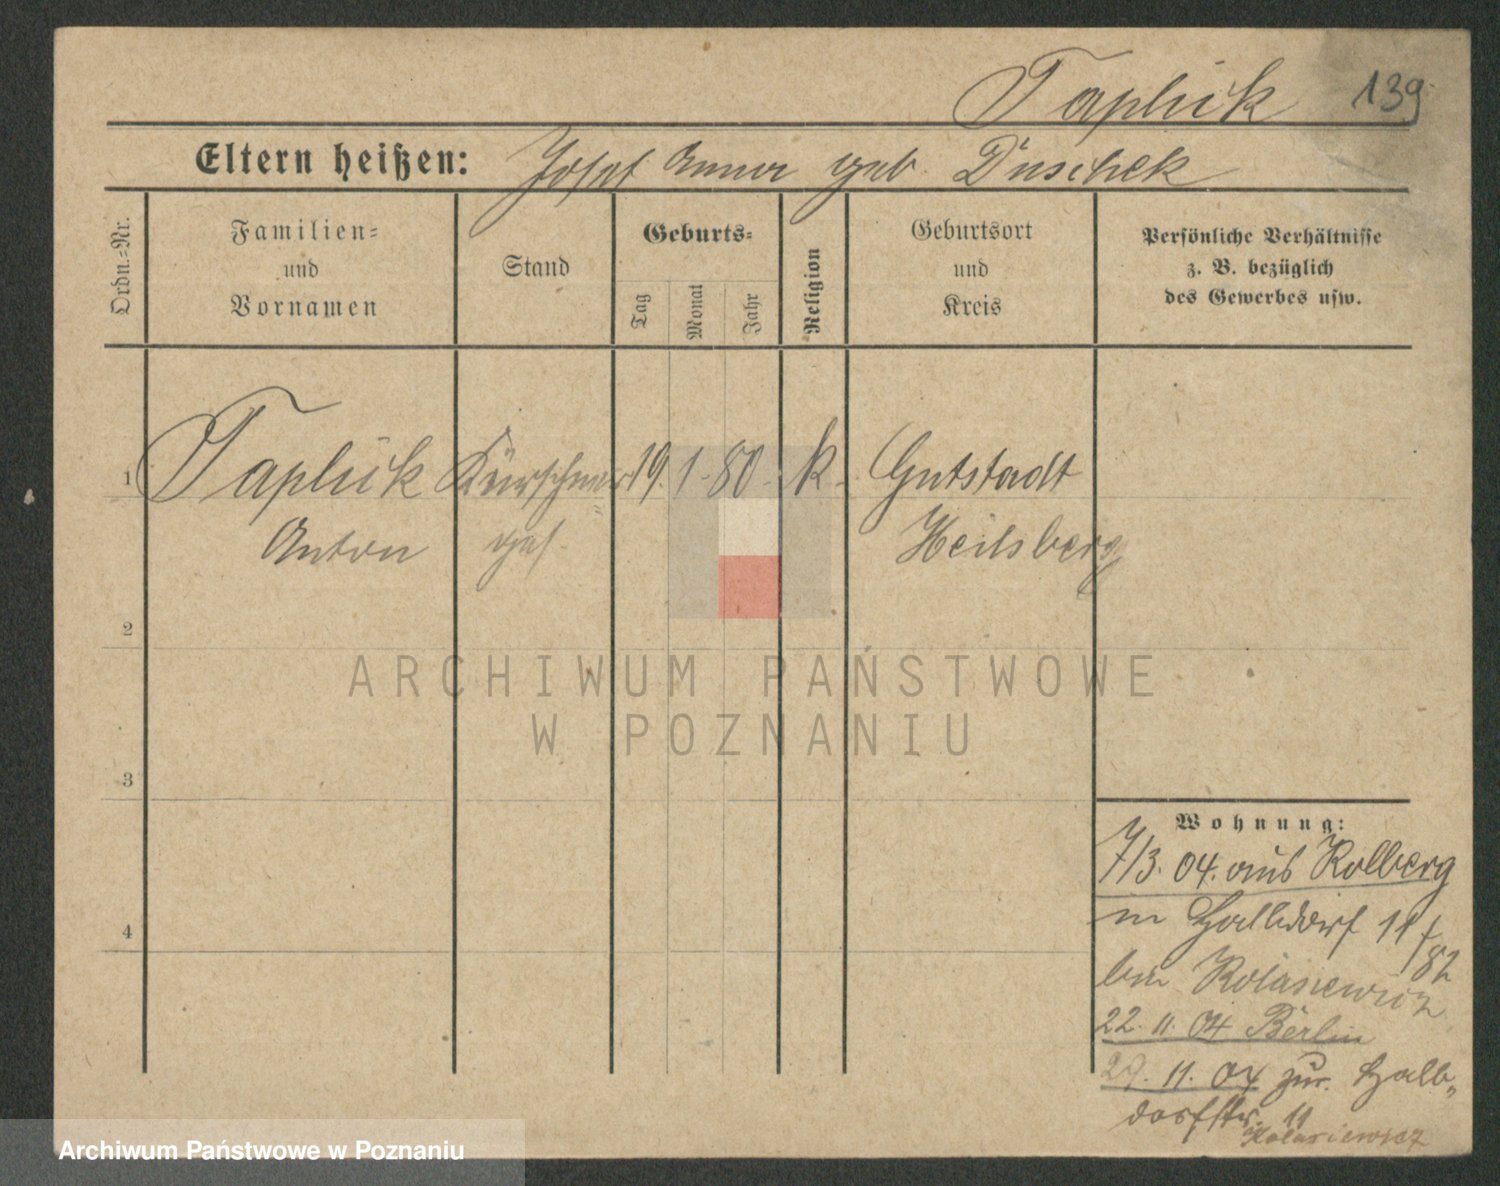 Taplick 139
Eltern heißen: Josef Anna geb. Duschek
Ordn.-Nr.
Familien-
und
Vornamen
Stand
Geburts-
Tag
Monat
Jahr
Religion
Geburtsort
und
Kreis
Persönliche Verhältnisse
z. B. bezüglich
des Gewerbes usw.
1 Taplick Kürschner 19. 1. 80. k. Gutstadt
Anton ges. Heilsberg
2
3
4
Wohnung:
7/3. 04. aus Kolberg
in Halbdorf 11/82
bei Kolasiewicz
22. 11. 04 Berlin
29. 11. 04 zur. Halb-
dorfstr. 11
Kolasiewicz
ARCHIWUM PAŃSTWOWE
W POZNANIU
Archiwum Państwowe w Poznaniu